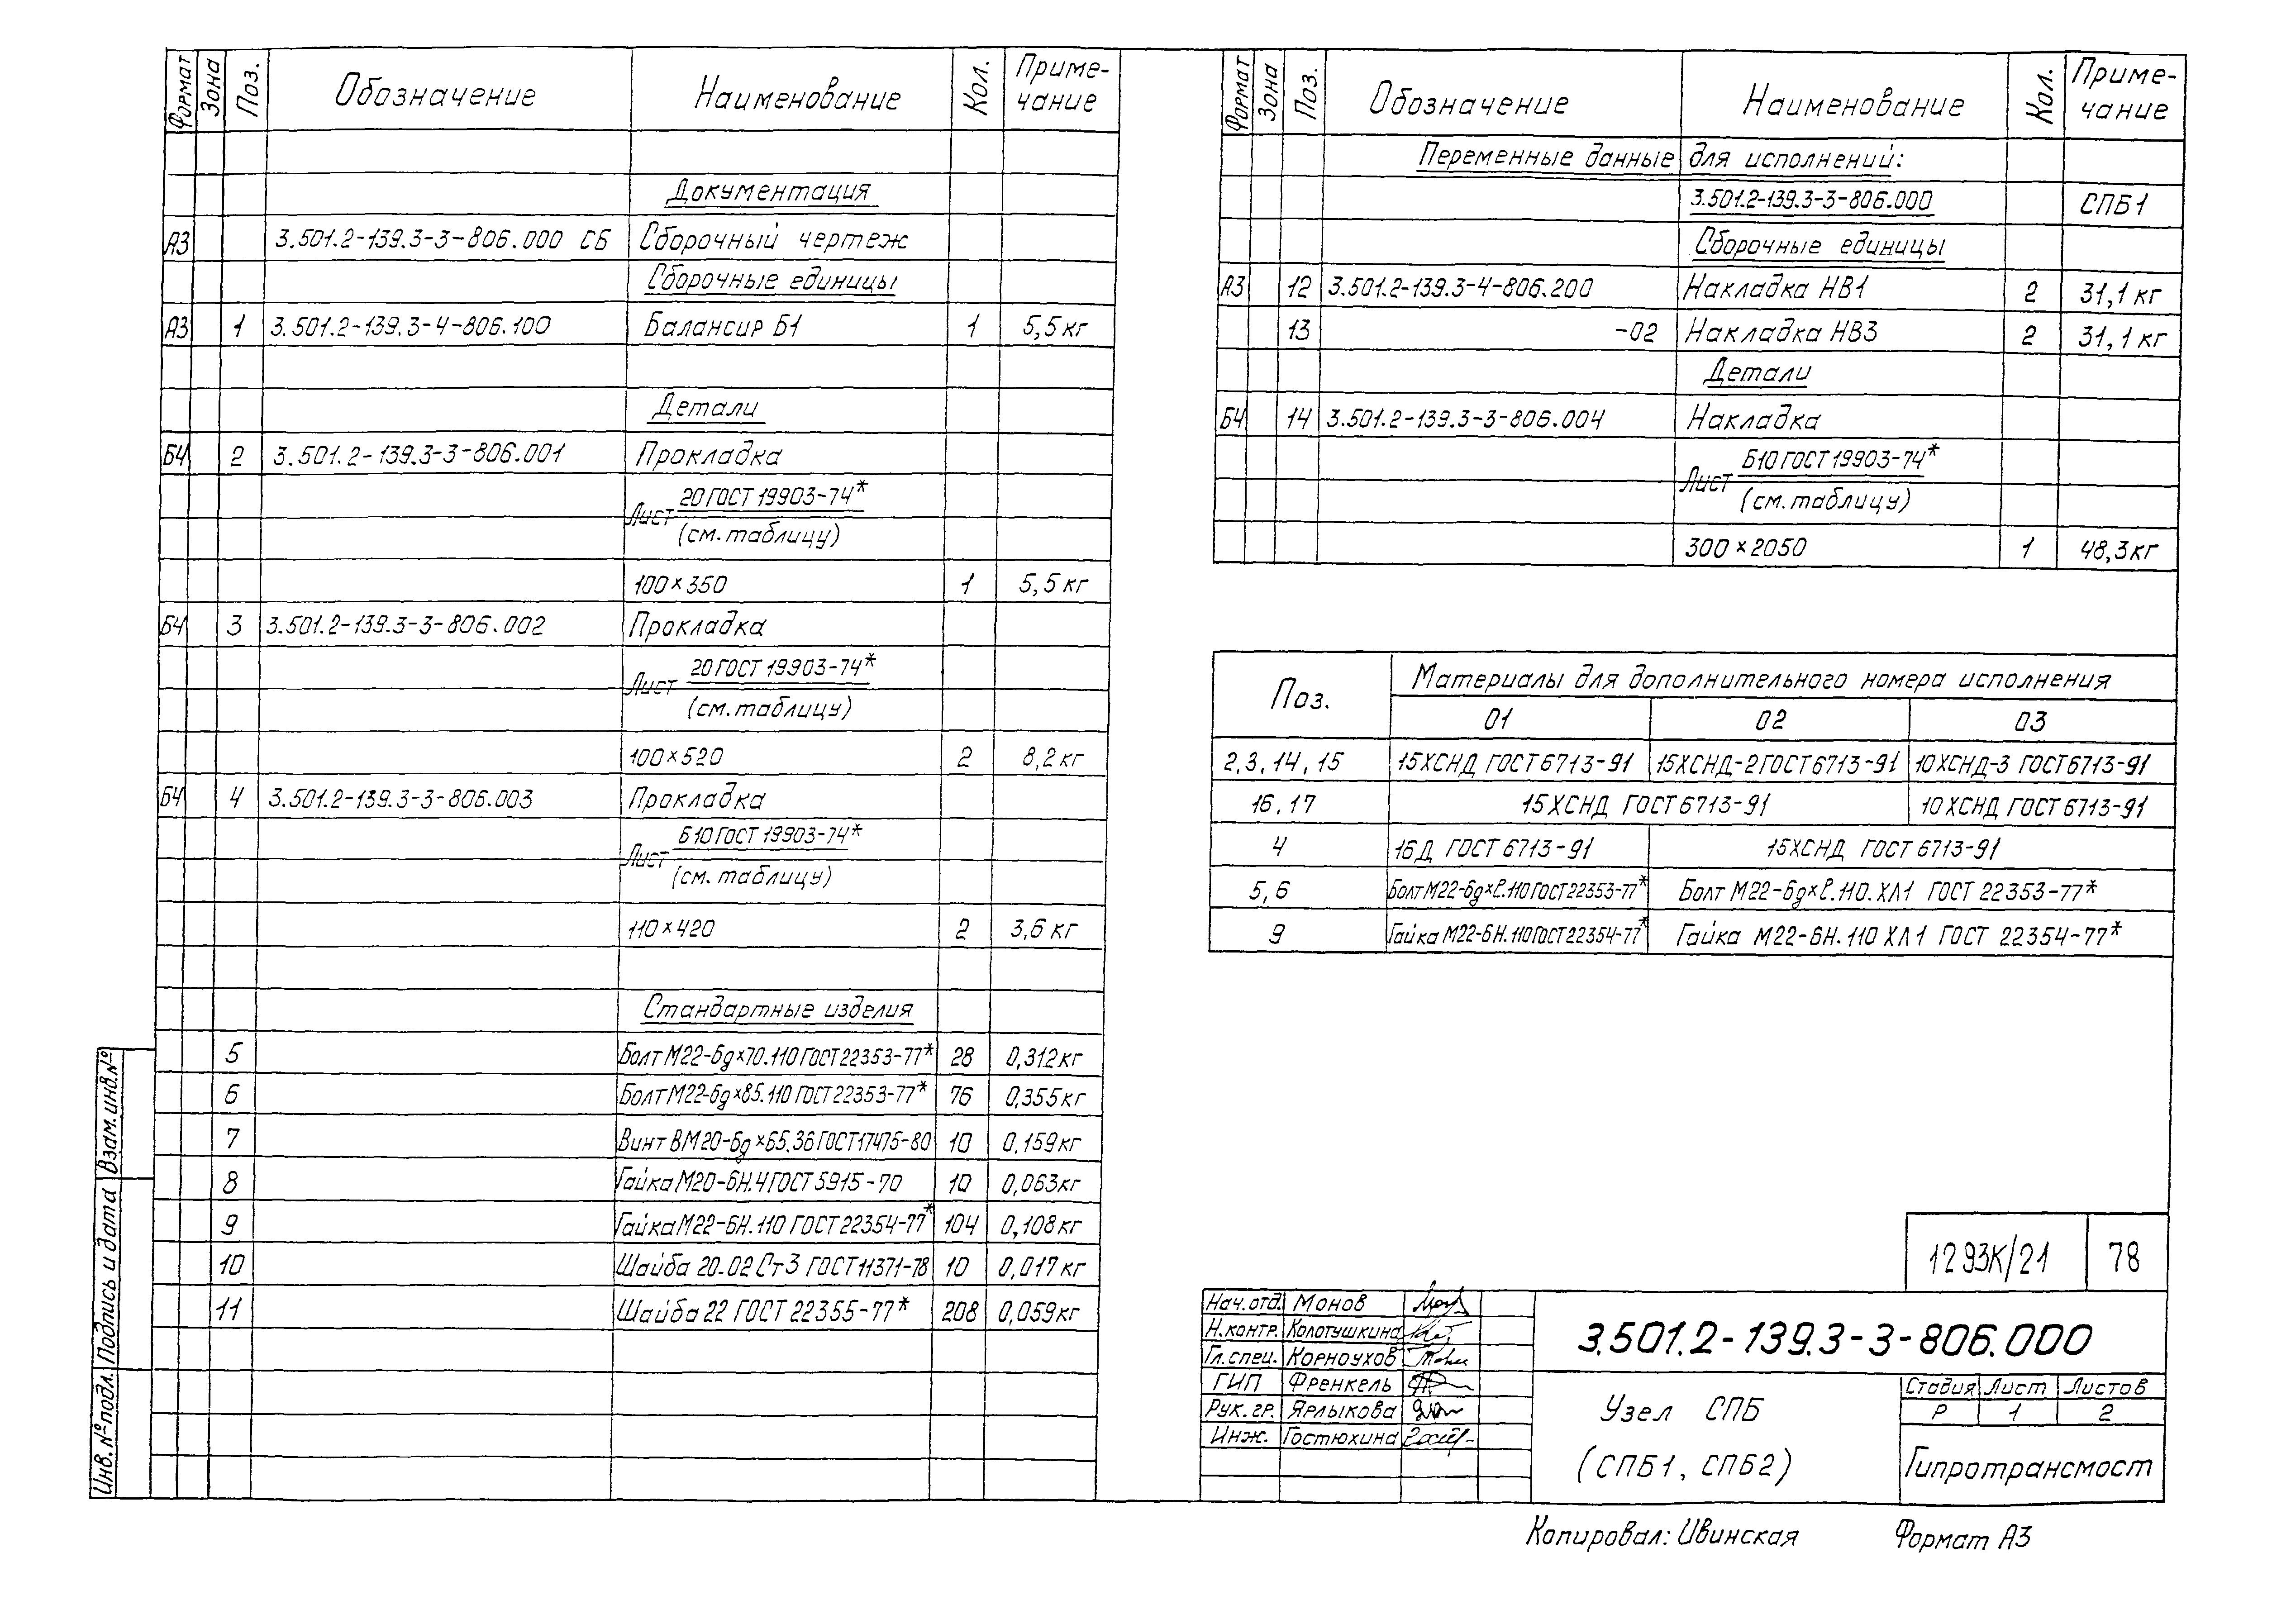 Формат Зона Поз. Обозначение Наименование Кол. Приме-
чание
Документация
А3 3.501.2-139.3-3-806.000 СБ Сборочный чертеж
Сборочные единицы
А3 1 3.501.2-139.3-4-806.100 Балансир Б1 1 5,5 кг
Детали
Б4 2 3.501.2-139.3-3-806.001 Прокладка
20 ГОСТ 19903-74*
Лист
(см. таблицу)
100×350 1 5,5 кг
Б4 3 3.501.2-139.3-3-806.002 Прокладка
20 ГОСТ 19903-74*
Лист
(см. таблицу)
100×520 2 8,2 кг
Б4 4 3.501.2-139.3-3-806.003 Прокладка
Б10 ГОСТ 19903-74*
Лист
(см. таблицу)
110×420 2 3,6 кг
Стандартные изделия
5 Болт М22-6g×70.110 ГОСТ 22353-77* 28 0,312 кг
6 Болт М22-6g×85.110 ГОСТ 22353-77* 76 0,355 кг
7 Винт ВМ20-6g×65.36 ГОСТ 17475-80 10 0,159 кг
8 Гайка М20-6Н.4 ГОСТ 5915-70 10 0,063 кг
9 Гайка М22-6Н.110 ГОСТ 22354-77* 104 0,108 кг
10 Шайба 20.02 Ст3 ГОСТ 11371-78 10 0,017 кг
11 Шайба 22 ГОСТ 22355-77* 208 0,059 кг
Инв. № подл. Подпись и дата Взам. инв. №
Формат Зона Поз. Обозначение Наименование Кол. Приме-
чание
Переменные данные для исполнений:
3.501.2-139.3-3-806.000 СПБ1
Сборочные единицы
А3 12 3.501.2-139.3-4-806.200 Накладка НВ1 2 31,1 кг
13 -02 Накладка НВ3 2 31,1 кг
Детали
Б4 14 3.501.2-139.3-3-806.004 Накладка
Б10 ГОСТ 19903-74*
Лист
(см. таблицу)
300×2050 1 48,3 кг
Поз. Материалы для дополнительного номера исполнения
01 02 03
2,3,14,15 15ХСНД ГОСТ 6713-91 15ХСНД-2 ГОСТ 6713-91 10ХСНД-3 ГОСТ 6713-91
16,17 15ХСНД ГОСТ 6713-91 10ХСНД ГОСТ 6713-91
4 16Д ГОСТ 6713-91 15ХСНД ГОСТ 6713-91
5,6 Болт М22-6g×ℓ.110 ГОСТ 22353-77* Болт М22-6g×ℓ.110.ХЛ1 ГОСТ 22353-77*
9 Гайка М22-6Н.110 ГОСТ 22354-77* Гайка М22-6Н.110 ХЛ1 ГОСТ 22354-77*
1293К/21 78
Нач. отд. Монов
Н. контр. Колотушкина
Гл. спец. Корноухов
ГИП Френкель
Рук. гр. Ярлыкова
Инж. Гостюхина
3.501.2-139.3-3-806.000
Узел СПБ
(СПБ1, СПБ2)
Стадия Лист Листов
Р 1 2
Гипротрансмост
Копировал: Ивинская Формат А3